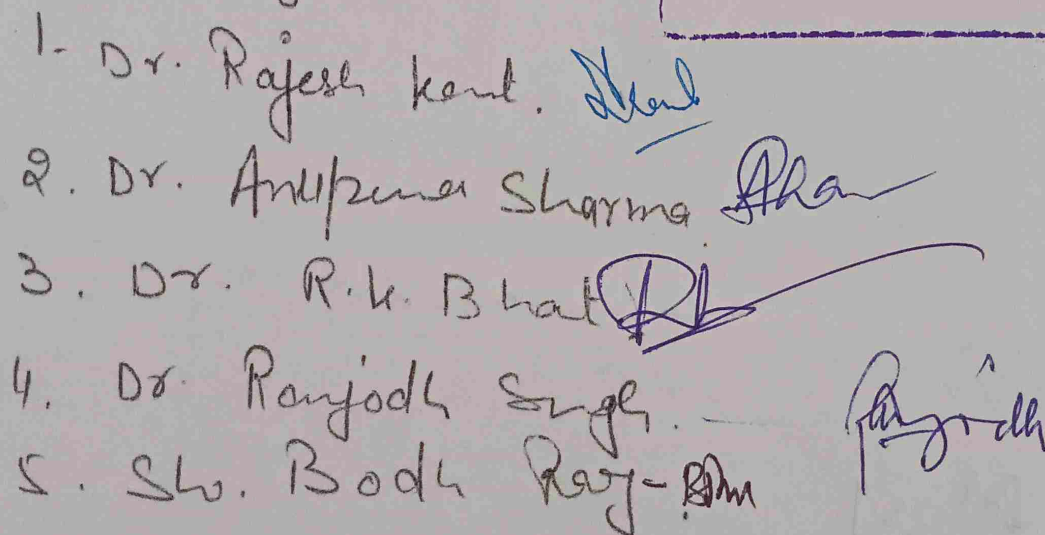 1- Dr. Rajesh kant.
2. Dr. Anupama Sharma
3. Dr. R.k. Bhat
4. Dr. Ranjodh Singh.
5. Sh. Bodh Raj-